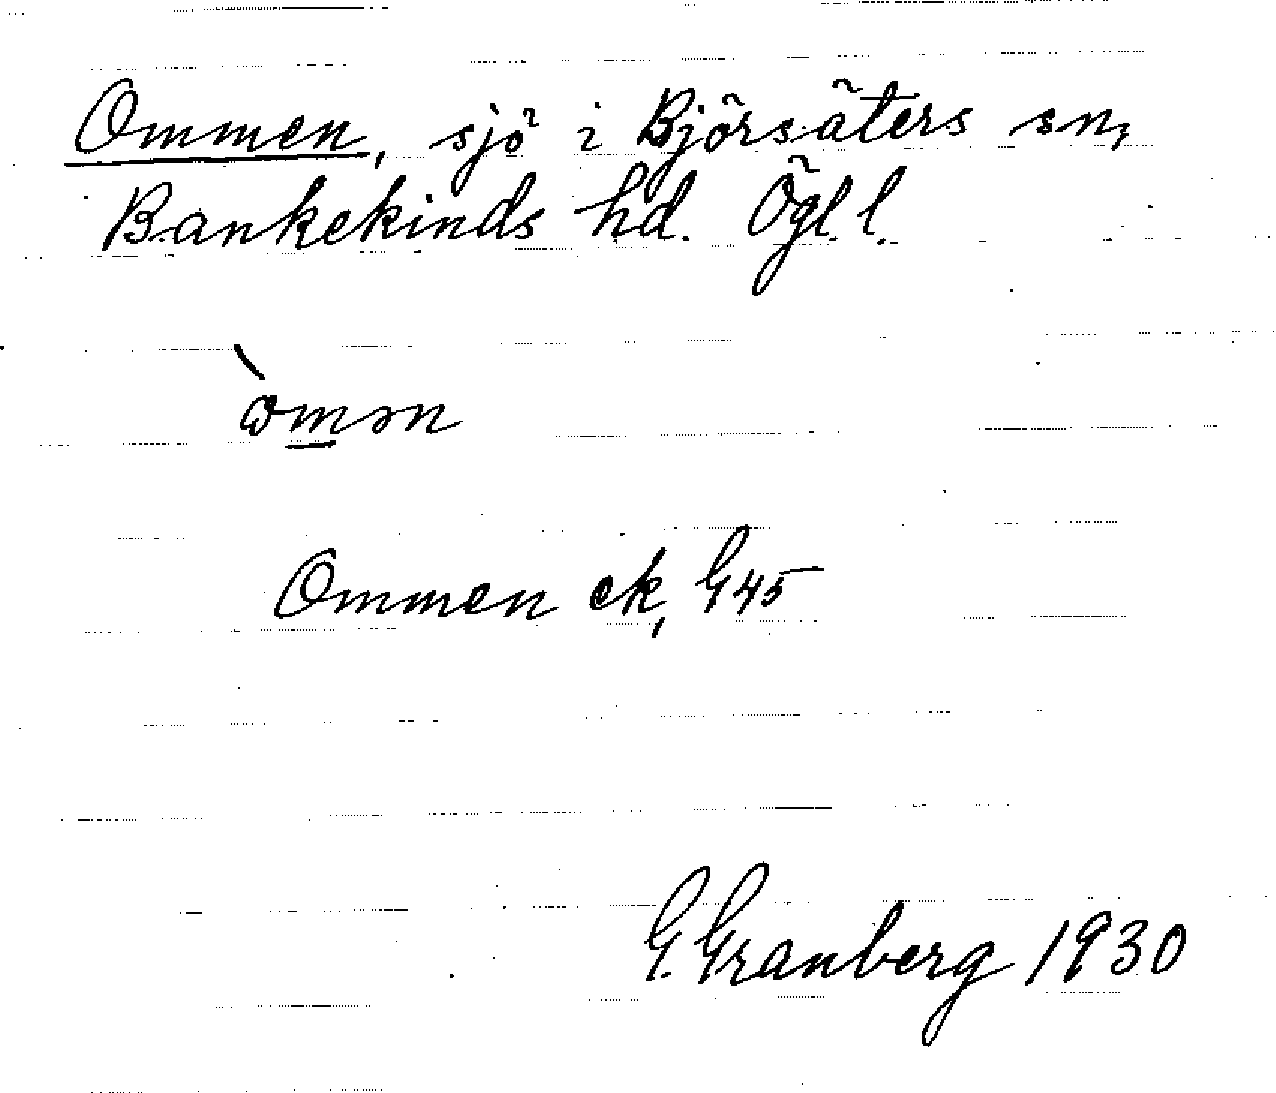 Ommen, sjö i Björsäters sn,
Bankekinds hd. Ögl. l.
òmən
Ommen ek, G45
G. Granberg 1930